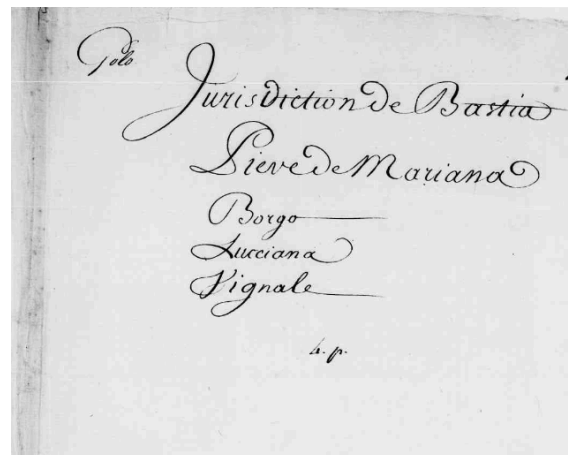 Golo
Jurisdiction de Bastia
Pieve de Mariana
Borgo
Lucciana
Vignale
4. p.